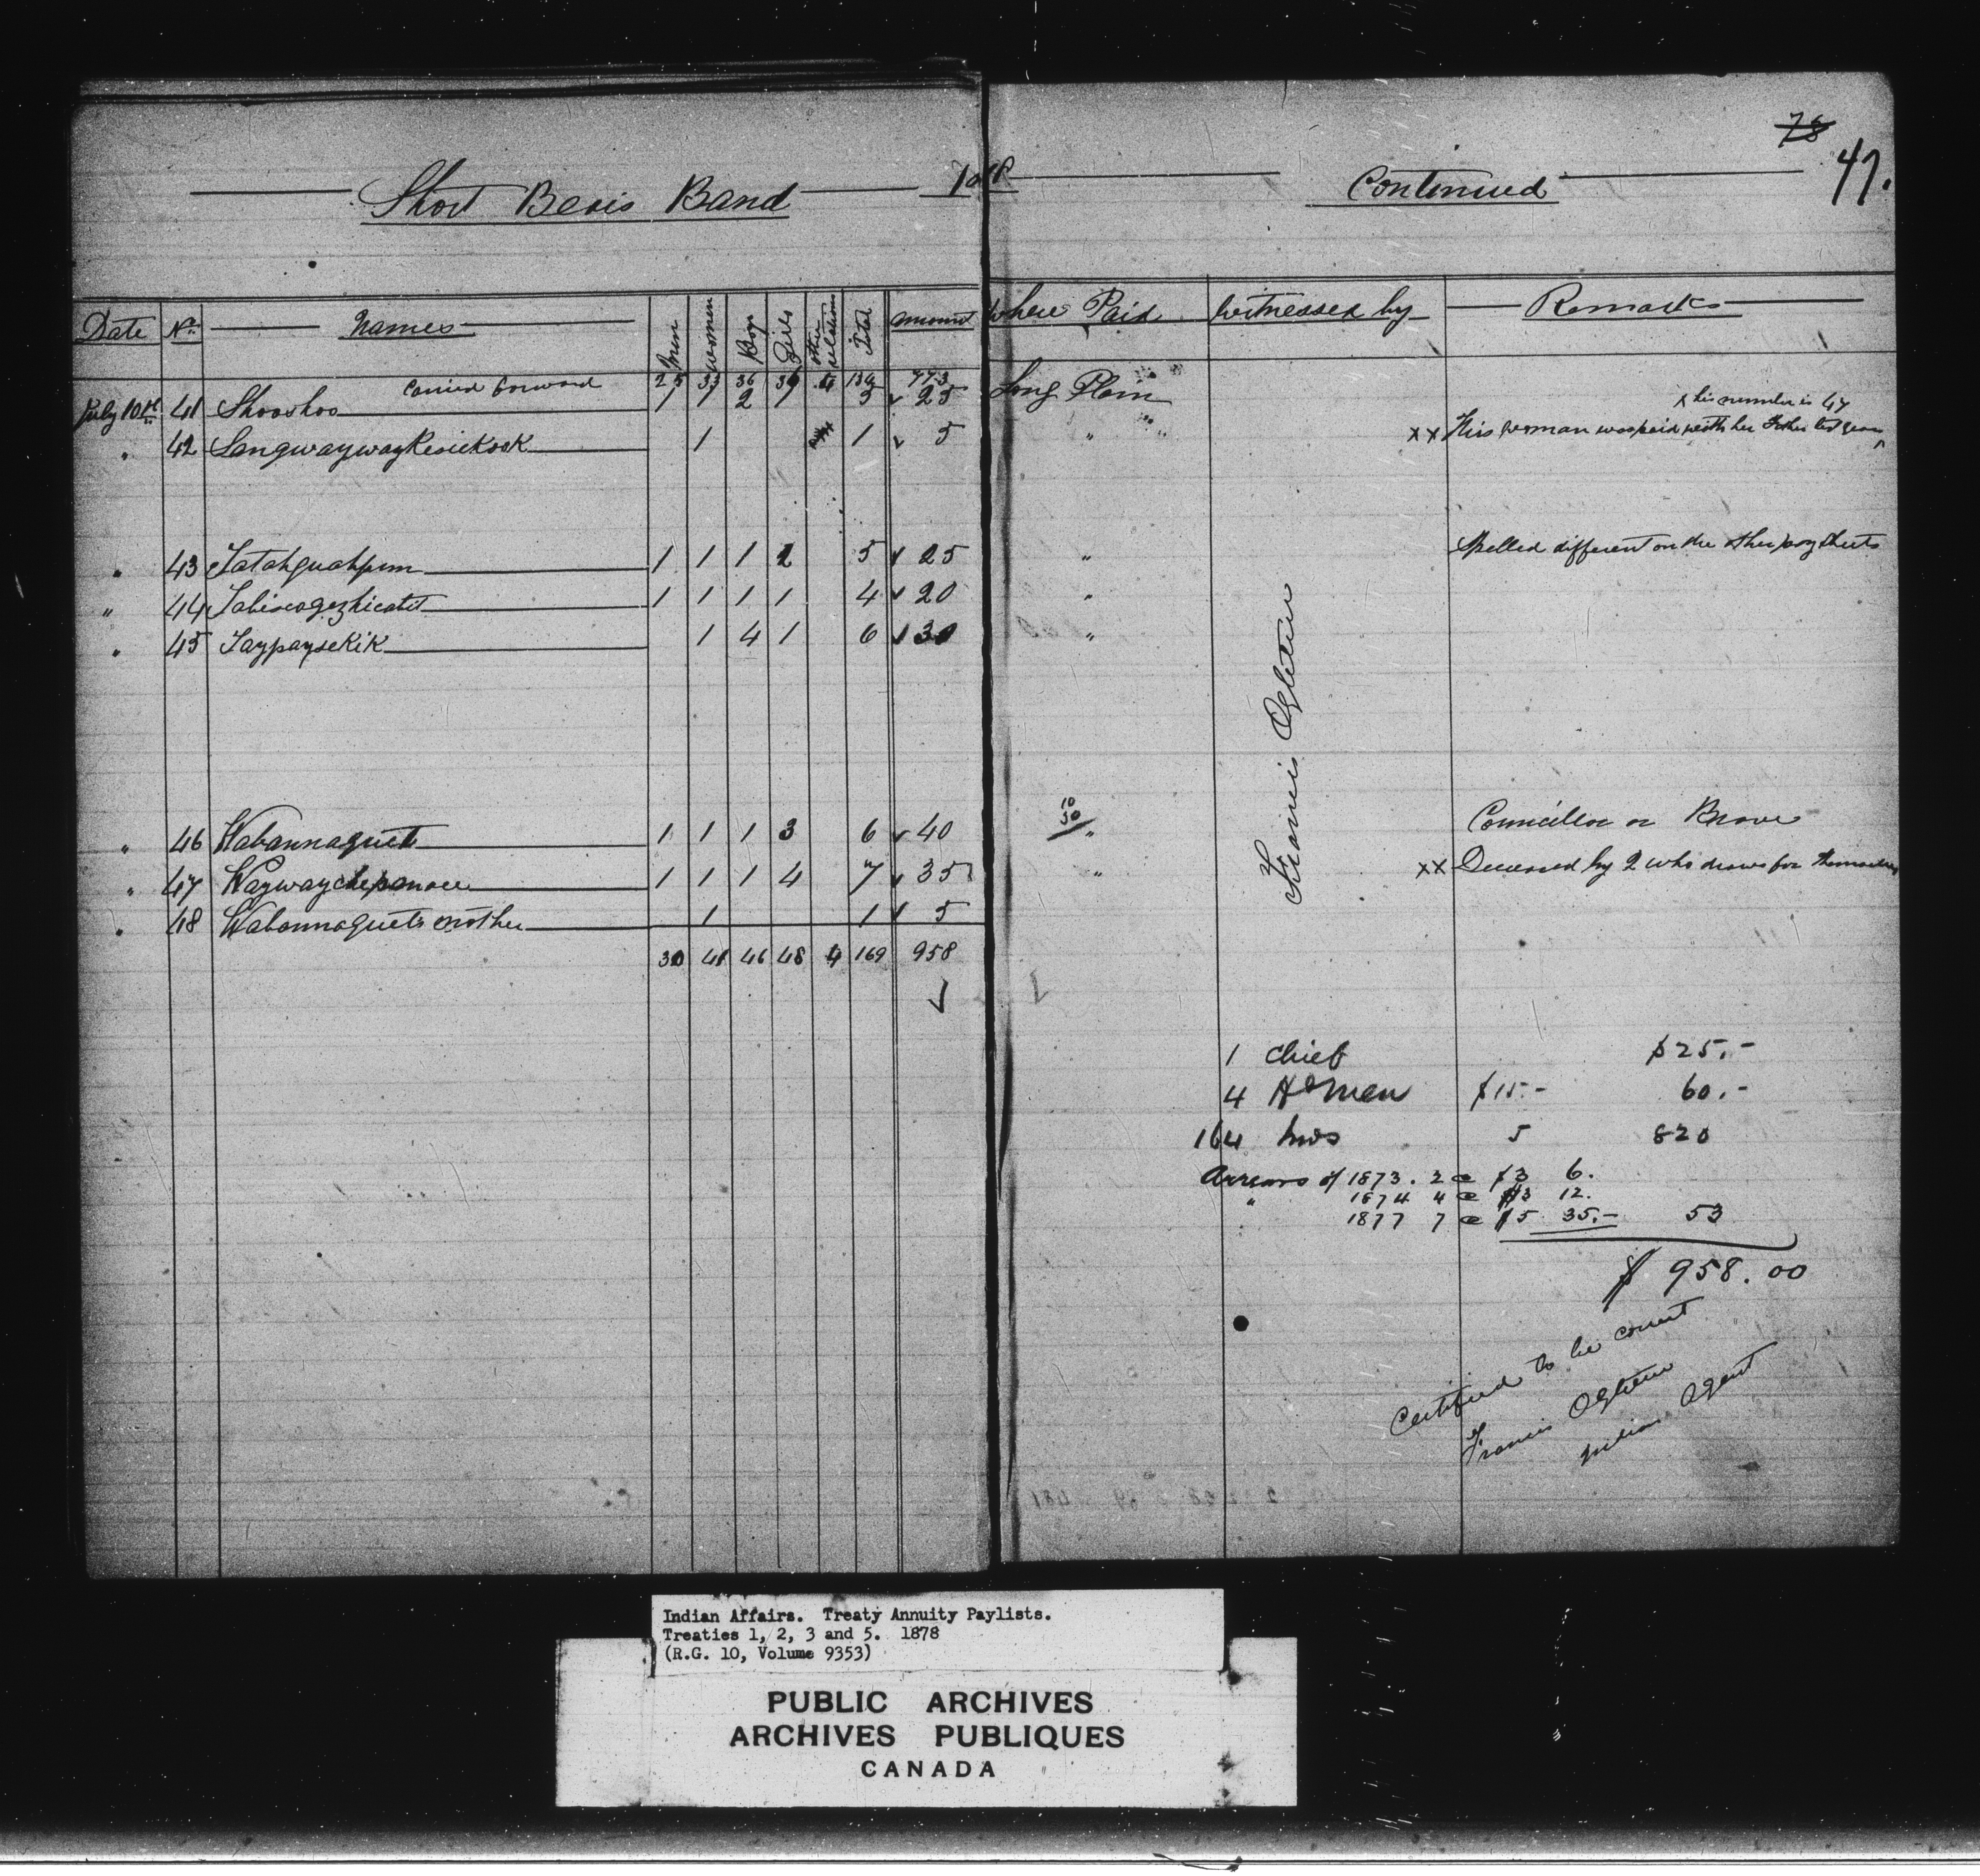 78
47.
Short Bears Band
Continued
Date No. Names Men Women Boys Girls other relations Total Amount Where Paid Witnessed by Remarks
Carried forward 25 33 36 36 4 134 773
July 10th 41 Shooshoo 1 1 2 1 5 25 Long Plain
his number is 47
" 42 Sangwaywaykesickook 1 1 5 " xx This woman was paid with her Father last year
" 43 Tatahguahpun 1 1 1 2 5 25 " Spelled different on the other pay sheets
" 44 Tabiscogezhicatit 1 1 1 1 4 20 "
" 45 Taypaysekik 1 4 1 6 30 "
Francis Ogletree
" 46 Wabannaquet 1 1 1 3 6 40 10/30 " Councillor or Brave
" 47 Waywaychepanace 1 1 1 4 7 35 " xx Decreased by 2 who draws for themselves
" 48 Wabannaquets mother 1 1 5
30 41 46 48 4 169 958
1 Chief $25.-
4 Hdmen $15.- 60.-
164 Inds 5 820
Arrears of 1873. 2 @ $3 6.
" 1874 4 @ $3 12.
1877 7 @ $5 35.- 53
$ 958.00
Certified to be correct
Francis Ogletree
Indian Agent
Indian Affairs. Treaty Annuity Paylists.
Treaties 1, 2, 3 and 5. 1878
(R.G. 10, Volume 9353)
PUBLIC ARCHIVES
ARCHIVES PUBLIQUES
CANADA